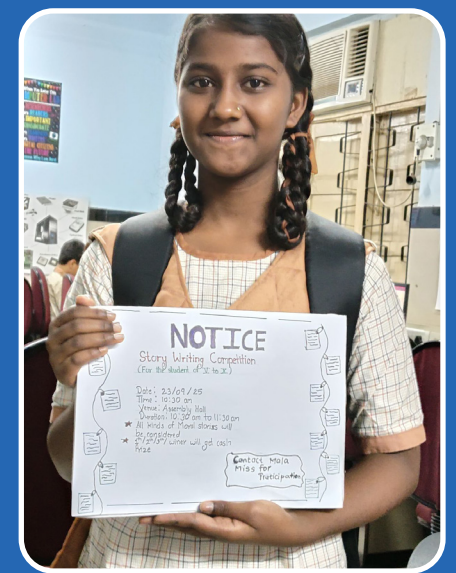 NOTICE
Story Writing Competition
(For the student of VI to X)
Date: 23/09/25
Time: 10:30 am
Venue: Assembly Hall
Duration: 10:30 am to 11:30 am
★ All kinds of Moral stories will
be considered
★ 1st/2nd/3rd/ winer will get cash
Prize
Contact Mala
Miss for
Praticipation
IMPORTANT